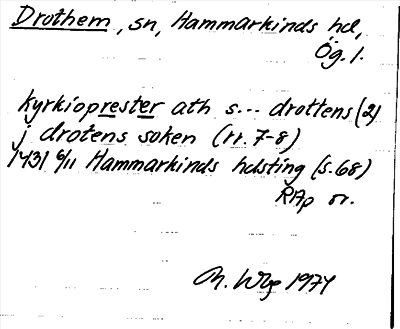 Drothem, sn, Hammarkinds hd,
Ög. l.
kyrkioprester ath s... drottens (2)
j drotens soken (rr. 7-8)
1431 6/11 Hammarkinds hdsting (s. 68)
RAp or.
1974